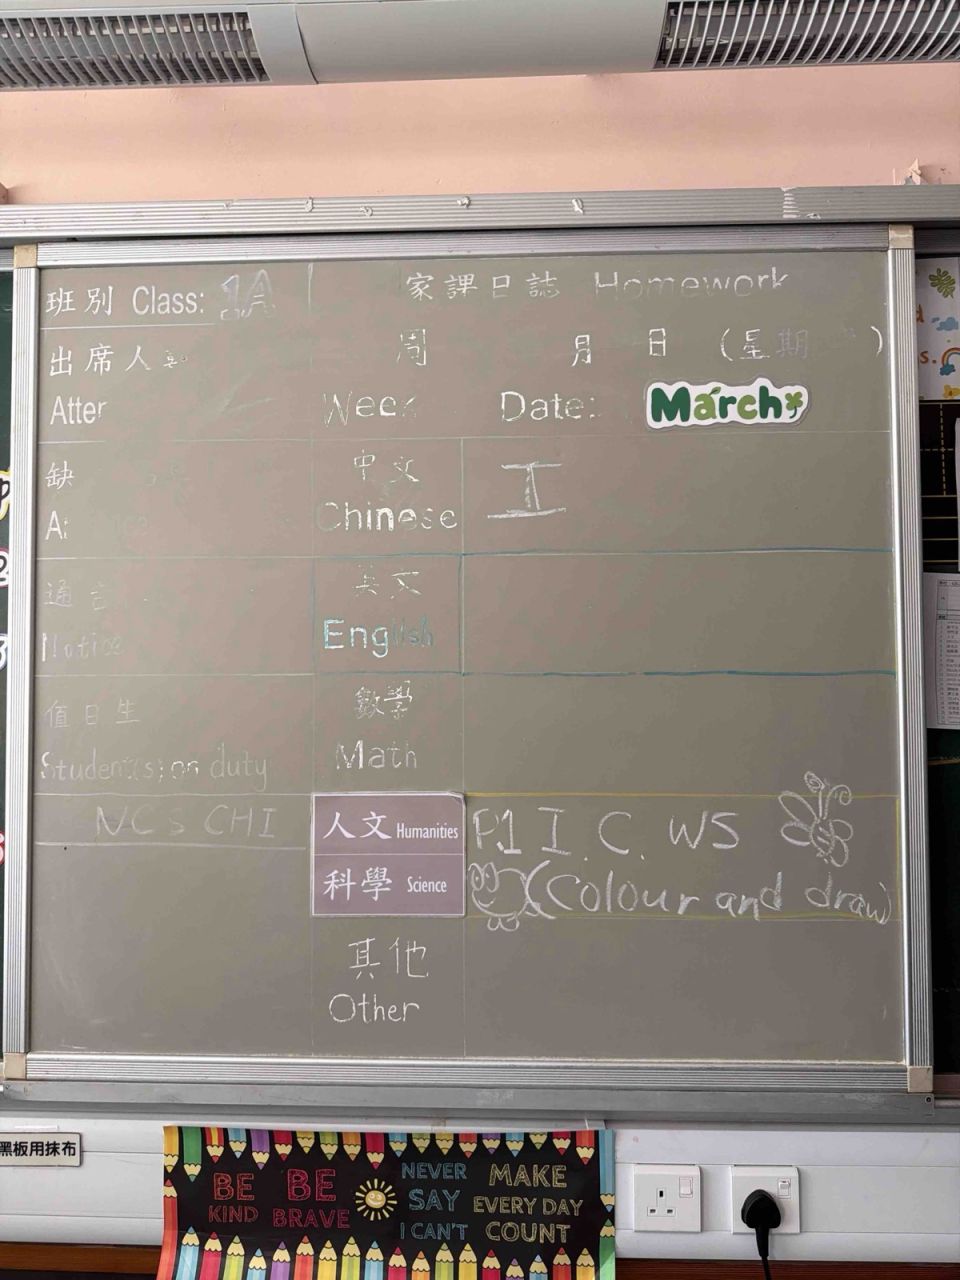 班別 Class: 1A
家課日誌 Homework
出席人
周 月 日 (星期 )
Week Date: March
缺
中文
Chinese
工
通告
Notice
英文
English
值日生
Student(s) on duty
數學
Math
NCS CHI
人文 Humanities
P.1 I.C. WS
科學 Science
(Colour and draw)
其他
Other
黑板用抹布
BE KIND
BE BRAVE
NEVER SAY I CAN'T
MAKE EVERY DAY COUNT